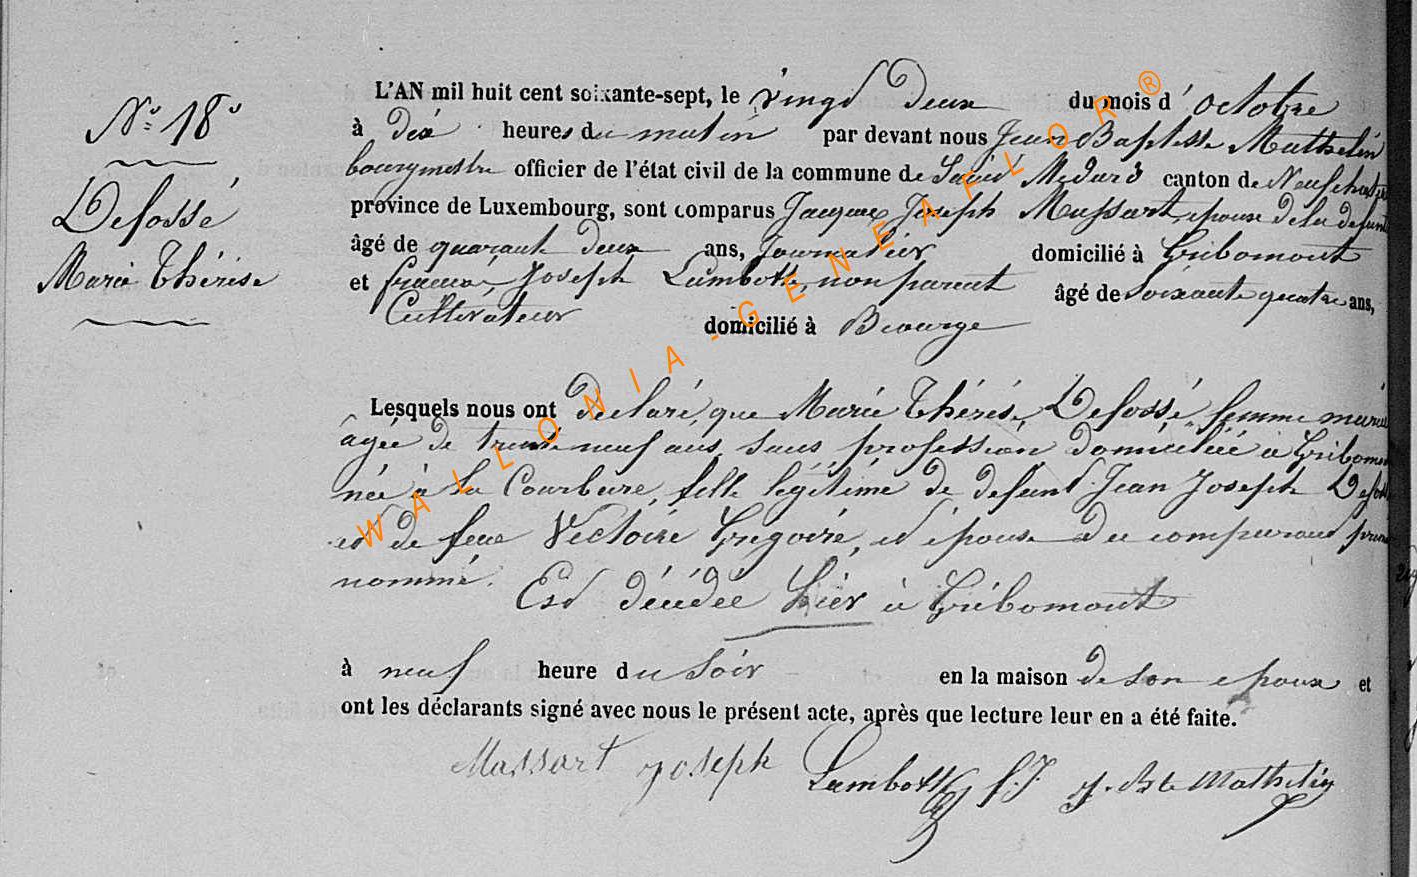 N° 18°
Defossé
Marie Thérèse
L'AN mil huit cent soixante-sept, le vingt deux du mois d' octobre
à dix heures du matin par devant nous Jean Baptiste Mathelin
bourgmestre officier de l'état civil de la commune de Saint Médard canton de Neufchateau
province de Luxembourg, sont comparus Jacques Joseph Massart, epoux de la defunte
âgé de quarante deux ans, Journalier domicilié à Gribomont
et François Joseph Lambotte, non parent âgé de Soixante quatre ans,
Cultivateur domicilié à Biourge
Lesquels nous ont declaré que Marie Thérèse Defossé, femme mariée
âgée de trente neuf ans, sans profession domiciliée à Gribomont
née à la Courbure, fille légitime de defunt Jean Joseph Defossé
et de feue Victoire Grégoire, et épouse du comparant
nommé. Est décédée hier à Gribomont
à neuf heure du Soir en la maison de son epoux et
ont les déclarants signé avec nous le présent acte, après que lecture leur en a été faite.
Massart Joseph Lambotte f. J. J. Bte Mathelin
WALLONIA-GENEAFLOR®